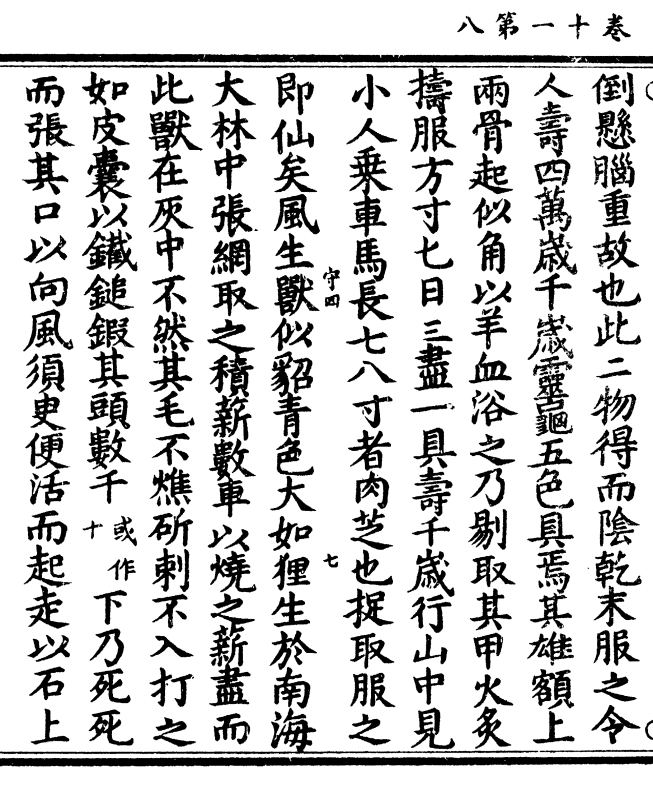 卷十一第八
倒懸腦重故也此二物得而陰乾末服之令
人壽四萬歲千歲靈龜五色具焉其雄額上
兩骨起似角以羊血浴之乃剔取其甲火炙
擣服方寸七日三盡一具壽千歲行山中見
小人乗車馬長七八寸者肉芝也捉取服之
即仙矣風生獸似貂青色大如狸生於南海
守四
七
大林中張網取之積薪數車以燒之薪盡而
此獸在灰中不然其毛不燋斫刺不入打之
如皮囊以鐵鎚鍜其頭數千或作十下乃死死
而張其口以向風須史便活而起走以石上